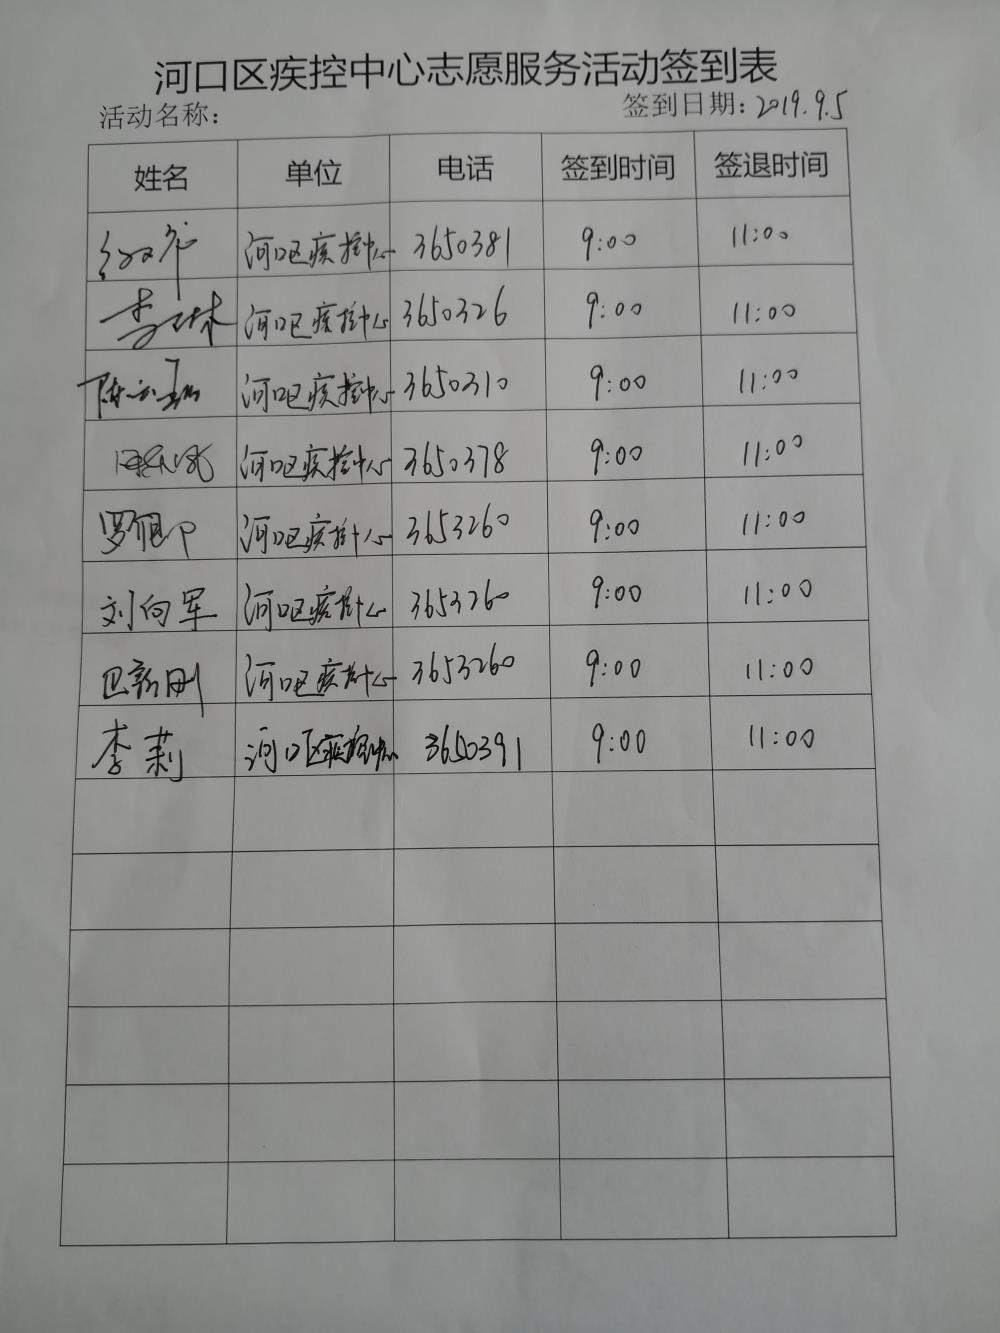 河口区疾控中心志愿服务活动签到表
活动名称： 签到日期：2019.9.5
姓名 单位 电话 签到时间 签退时间
河口区疾控中心 3650381 9:00 11:00
李 林 河口区疾控中心 3650326 9:00 11:00
陈 河口区疾控中心 3650310 9:00 11:00
河口区疾控中心 3650378 9:00 11:00
罗 河口区疾控中心 3653260 9:00 11:00
刘向军 河口区疾控中心 3653260 9:00 11:00
巴新刚 河口区疾控中心 3653260 9:00 11:00
李莉 河口区疾控中心 3650391 9:00 11:00